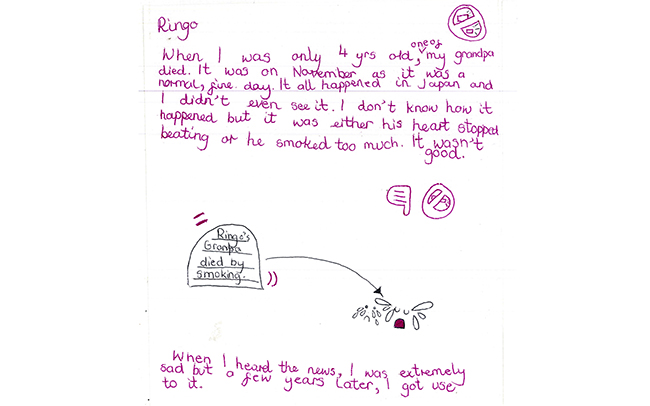 Ringo
When I was only 4 yrs old, one of my grandpa
died. It was on November as it was a
normal, fine day. It all happened in Japan and
I didn't even see it. I don't know how it
happened but it was either his heart stopped
beating or he smoked too much. It wasn't
good.
Ringo's
Granpa
died by
smoking.
When I heard the news, I was extremely
sad but a few years later, I got use
to it.